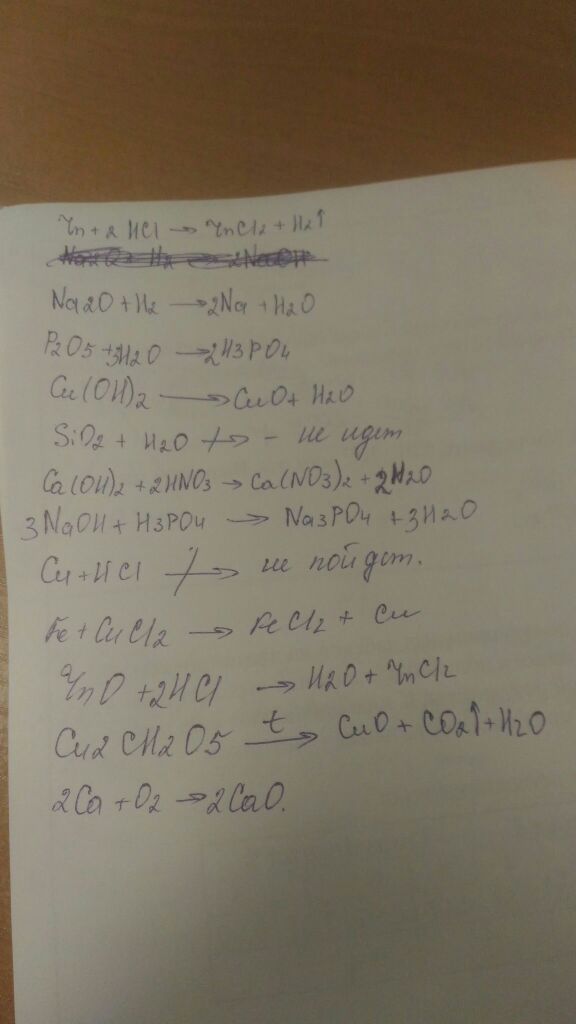 Zn + 2HCl → ZnCl2 + H2↑
Na2O + H2 → 2NaOH
Na2O + H2 → 2Na + H2O
P2O5 + 3H2O → 2H3PO4
Cu(OH)2 → CuO + H2O
SiO2 + H2O ↛ - не идет
Ca(OH)2 + 2HNO3 → Ca(NO3)2 + 2H2O
3NaOH + H3PO4 → Na3PO4 + 3H2O
Cu + HCl ↛ не пойдет.
Fe + CuCl2 → FeCl2 + Cu
ZnO + 2HCl → H2O + ZnCl2
Cu2CH2O5 t→ CuO + CO2↑ + H2O
2Ca + O2 → 2CaO.